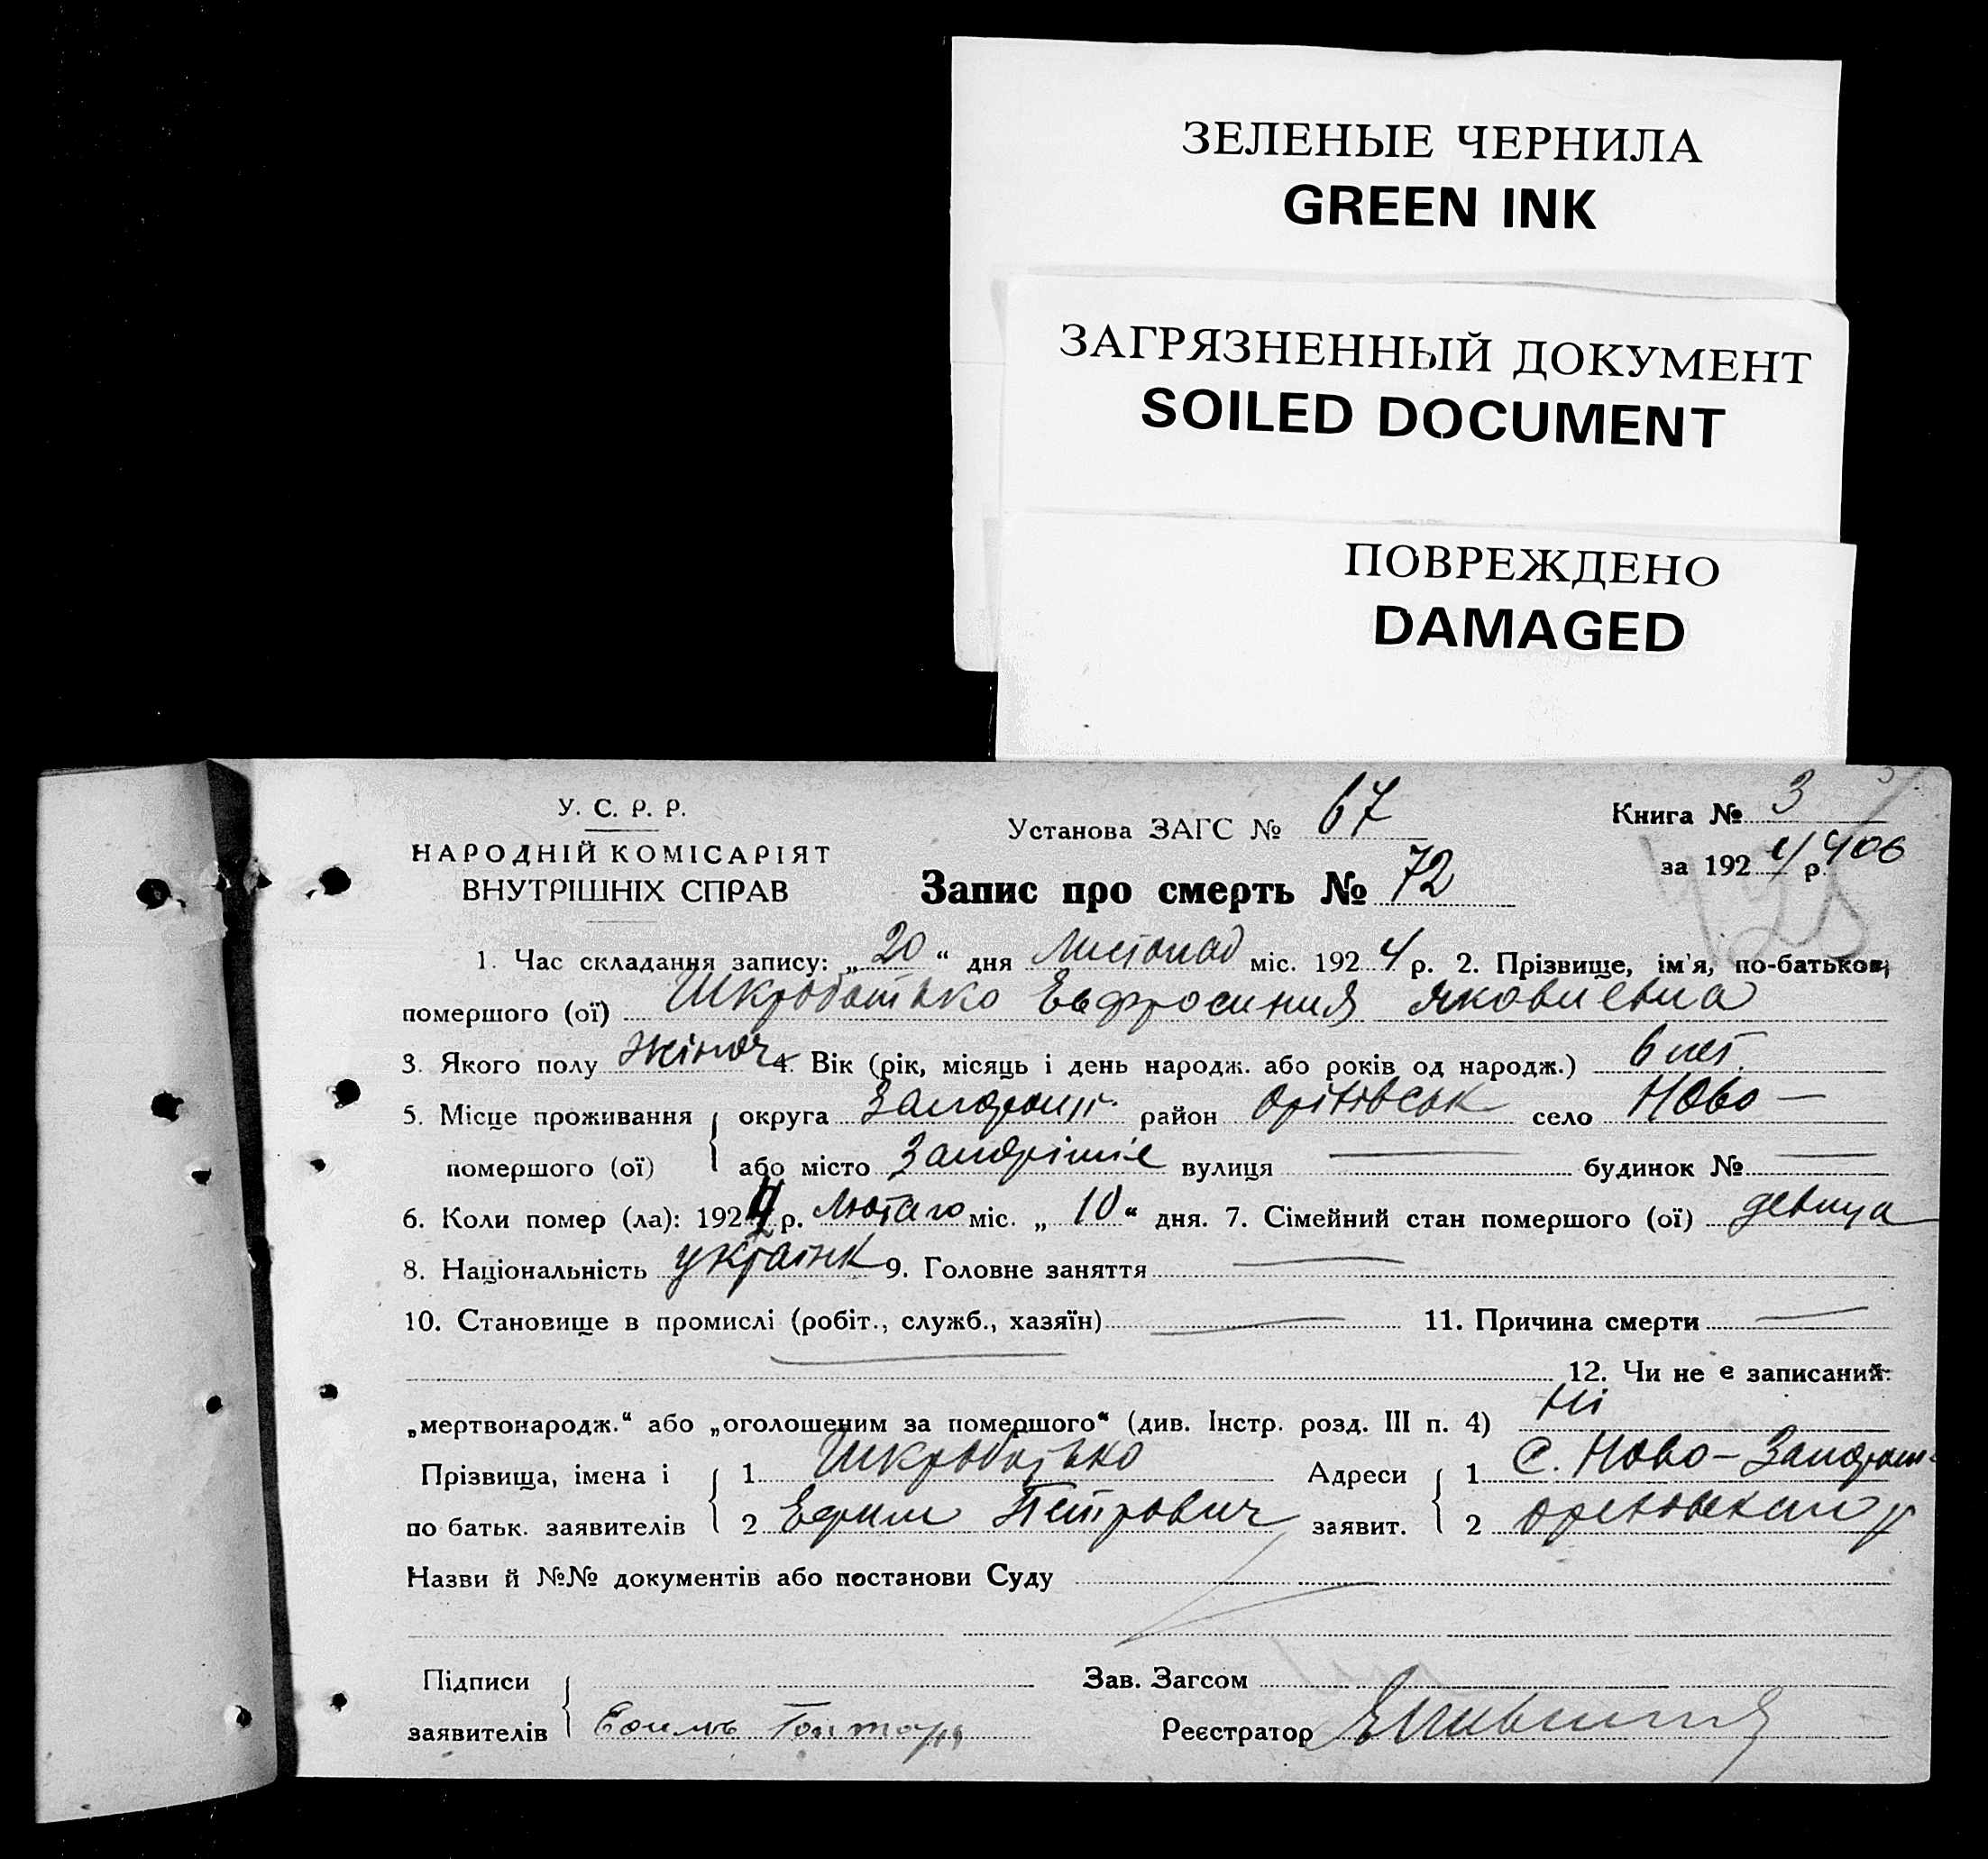 ЗЕЛЕНЫЕ ЧЕРНИЛА
GREEN INK
ЗАГРЯЗНЕННЫЙ ДОКУМЕНТ
SOILED DOCUMENT
ПОВРЕЖДЕНО
DAMAGED
У. С. Р. Р.
НАРОДНІЙ КОМІСАРІЯТ
ВНУТРІШНІХ СПРАВ
Установа ЗАГС № 67
Запис про смерть № 72
Книга № 3
за 1924 р. 406
1. Час складання запису: „20“ дня Листопад міс. 1924 р. 2. Прізвище, ім'я, по-батькові
помершого (ої) Шкробатько Евфросиния Яковлевна
3. Якого полу жіноч 4. Вік (рік, місяць і день народж. або років од народж.) 6 лет.
5. Місце проживання округа район Оріховськ село Ново-
помершого (ої) або місто вулиця — будинок № —
6. Коли помер (ла): 1924 р. Лютаго міс. „10“ дня. 7. Сімейний стан помершого (ої) девица
8. Національність українк 9. Головне заняття —
10. Становище в промислі (робіт., служб., хазяїн) — 11. Причина смерти —
— 12. Чи не є записаний:
„мертвонародж.“ або „оголошеним за помершого“ (див. Інстр. розд. III п. 4) Ні
Прізвища, імена і 1 Шкробатько Адреси 1 С. Ново-
по батьк. заявителів 2 Ефим Петрович заявит. 2
Назви й №№ документів або постанови Суду
Підписи Зав. Загсом
заявителів Реєстратор